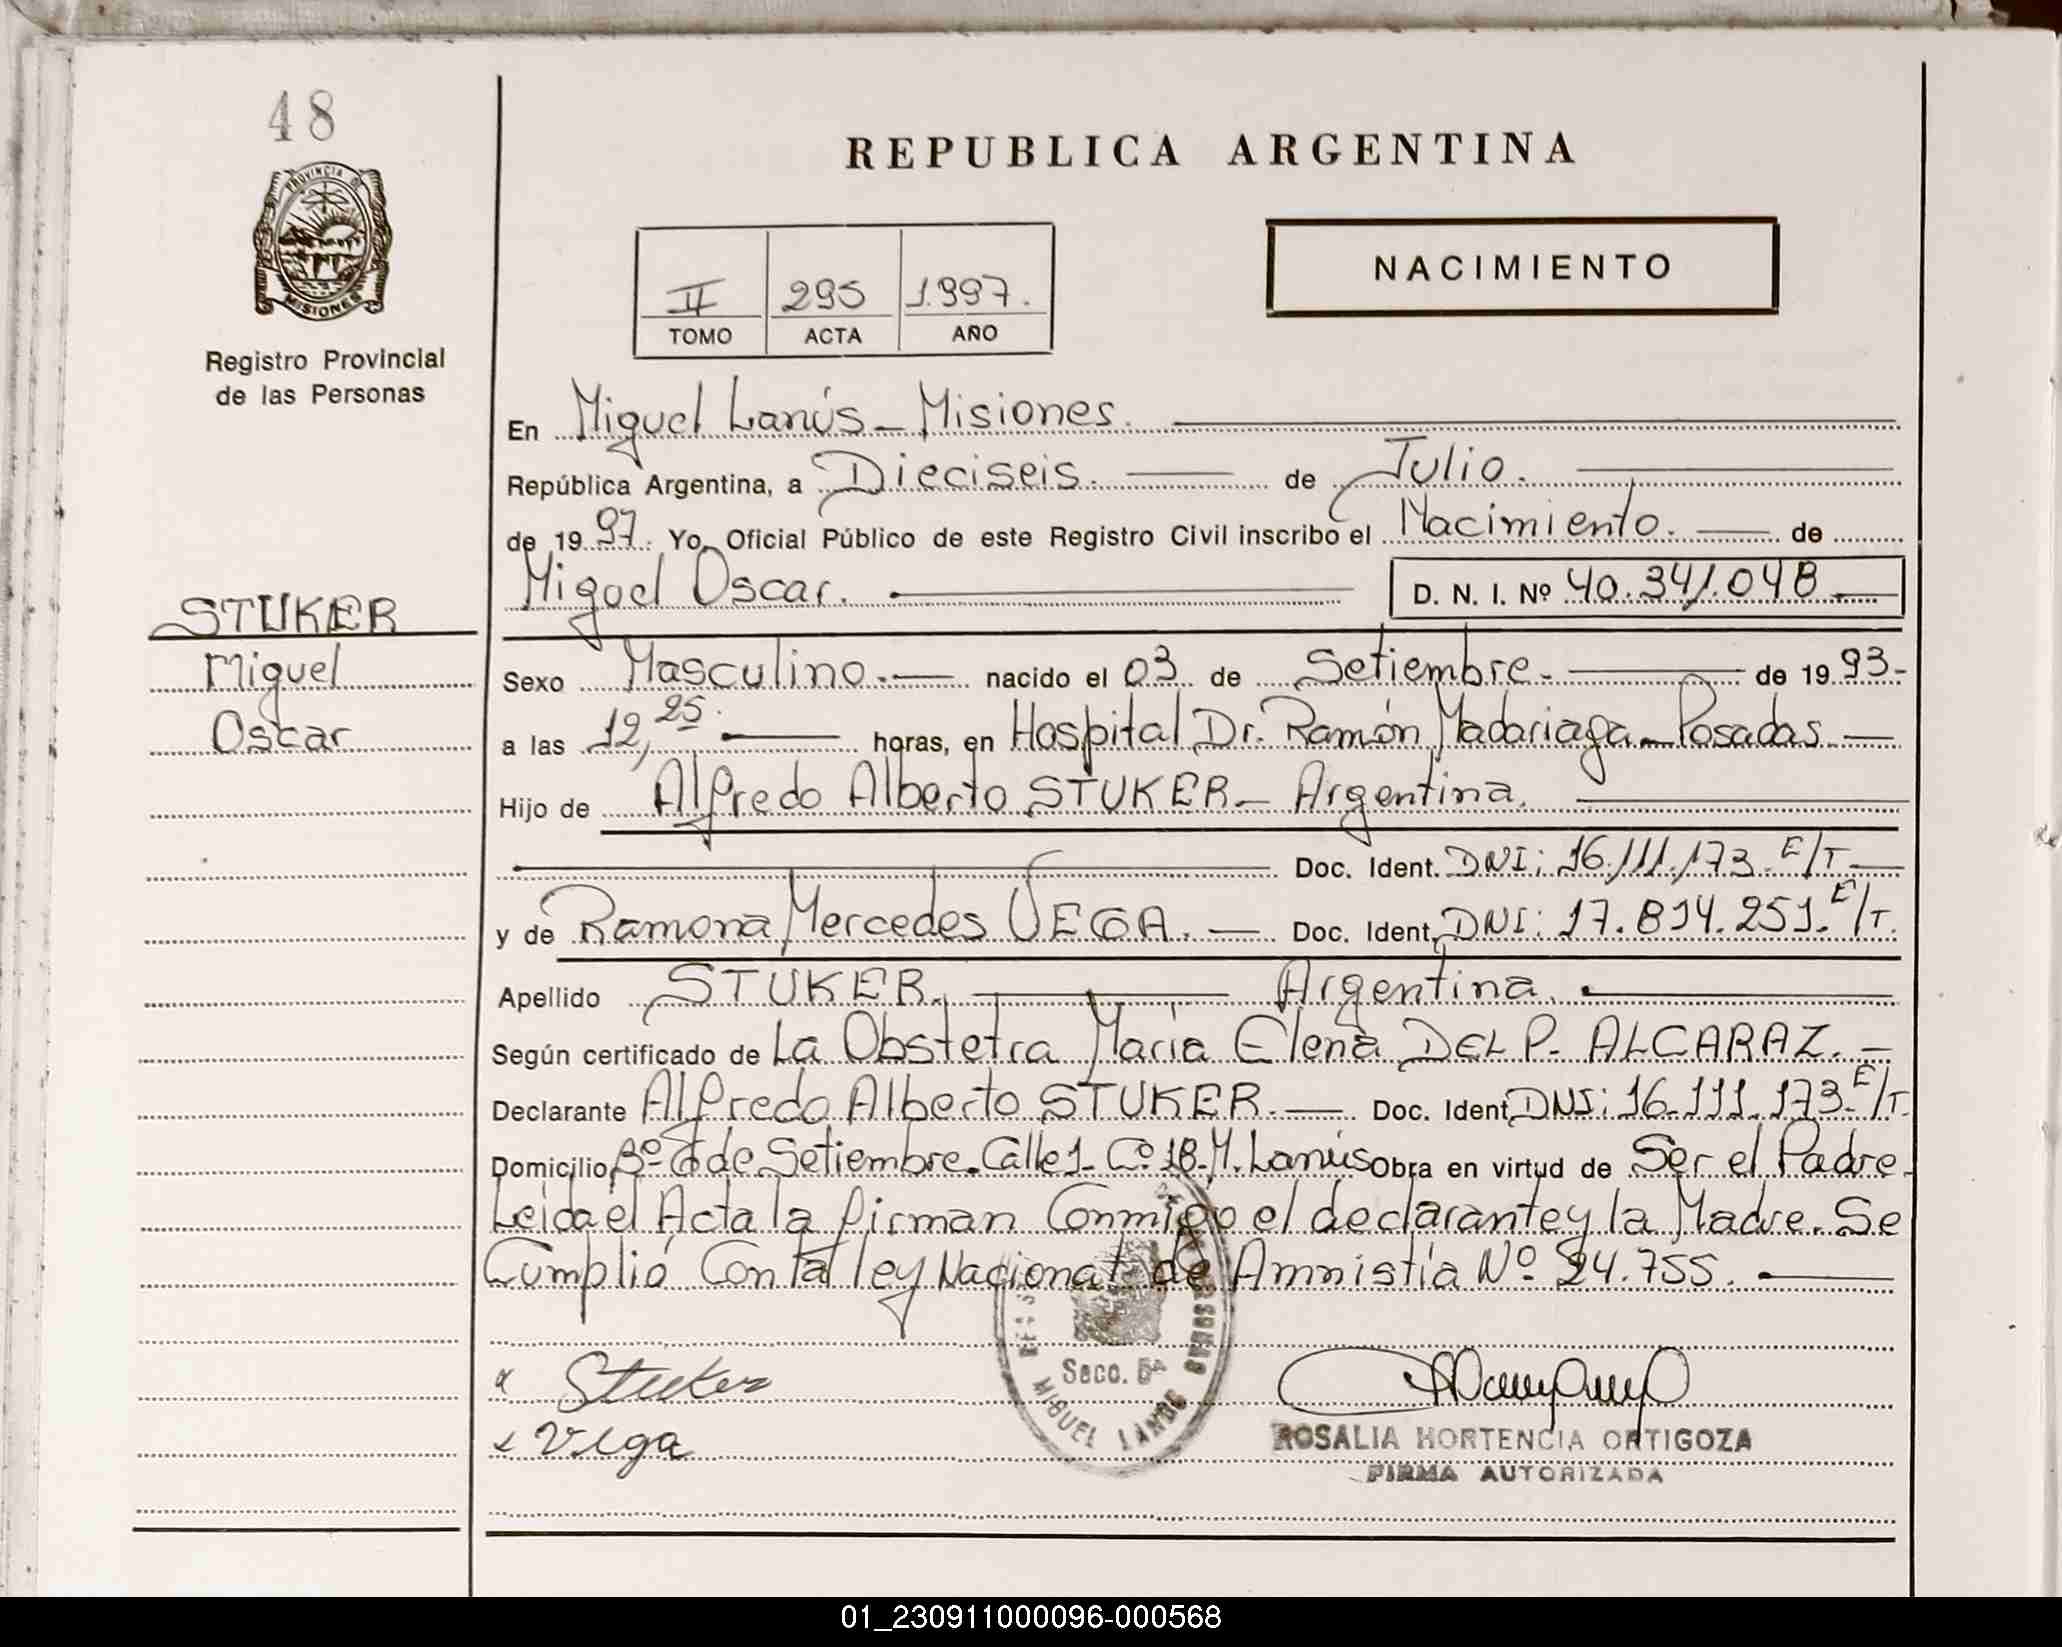 48
REPUBLICA ARGENTINA
PROVINCIA DE
MISIONES
Registro Provincial
de las Personas
II 295 1.997.
TOMO ACTA AÑO
NACIMIENTO
En Miguel Lanús - Misiones.
República Argentina, a Dieciseis. de Julio.
de 19 97. Yo, Oficial Público de este Registro Civil inscribo el Nacimiento. de
Miguel Oscar. D. N. I. Nº 40.341.048
STUKER
Miguel
Oscar
Sexo Masculino. nacido el 03 de Setiembre. de 19 93-
a las 12,25. horas, en Hospital Dr. Ramón Madariaga - Posadas
Hijo de Alfredo Alberto STUKER - Argentina.
Doc. Ident. DNI: 16.111.173. E/T.
y de Ramona Mercedes VEGA. Doc. Ident. DNI: 17.814.251. E/T.
Apellido STUKER. Argentina.
Según certificado de La Obstetra María Elena DEL P. ALCARAZ.
Declarante Alfredo Alberto STUKER. Doc. Ident. DNI: 16.111.173. E/T.
Domicilio Bº de Setiembre. Calle 1. Cº 18. M. Lanús Obra en virtud de Ser el Padre.
Leida el Acta la firman Conmigo el declarante y la Madre. Se
Cumplió Con la ley Nacional de Amnistía Nº 24.755.
Stuker
Vega
Secc. 5ª
MIGUEL LANUS
ROSALIA HORTENCIA ORTIGOZA
FIRMA AUTORIZADA
01_230911000096-000568